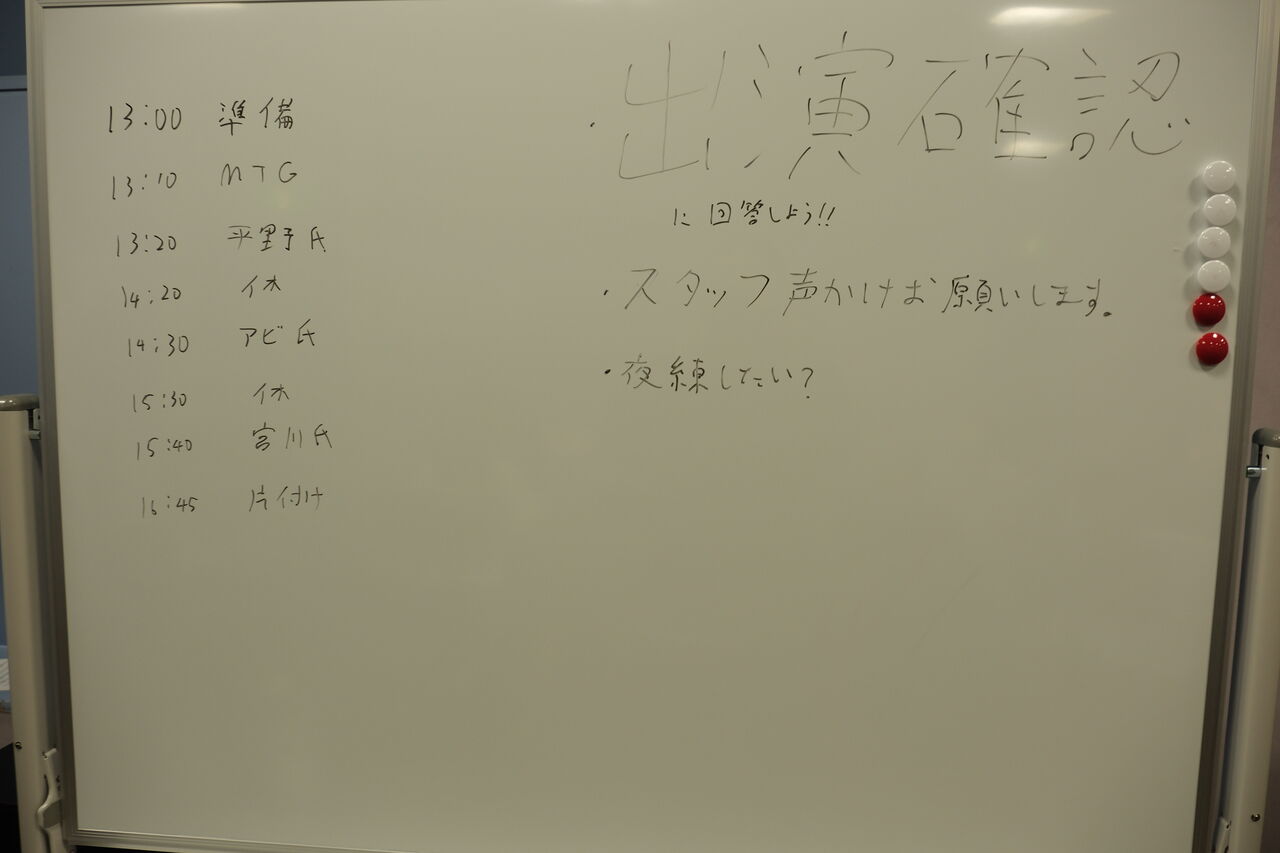 13:00 準備
13:10 MTG
13:20 平野氏
14:20 休
14:30 アビ氏
15:30 休
15:40 宮川氏
16:45 片付け
・出演確認
に回答しよう!!
・スタッフ声かけお願いします。
・夜練したい?